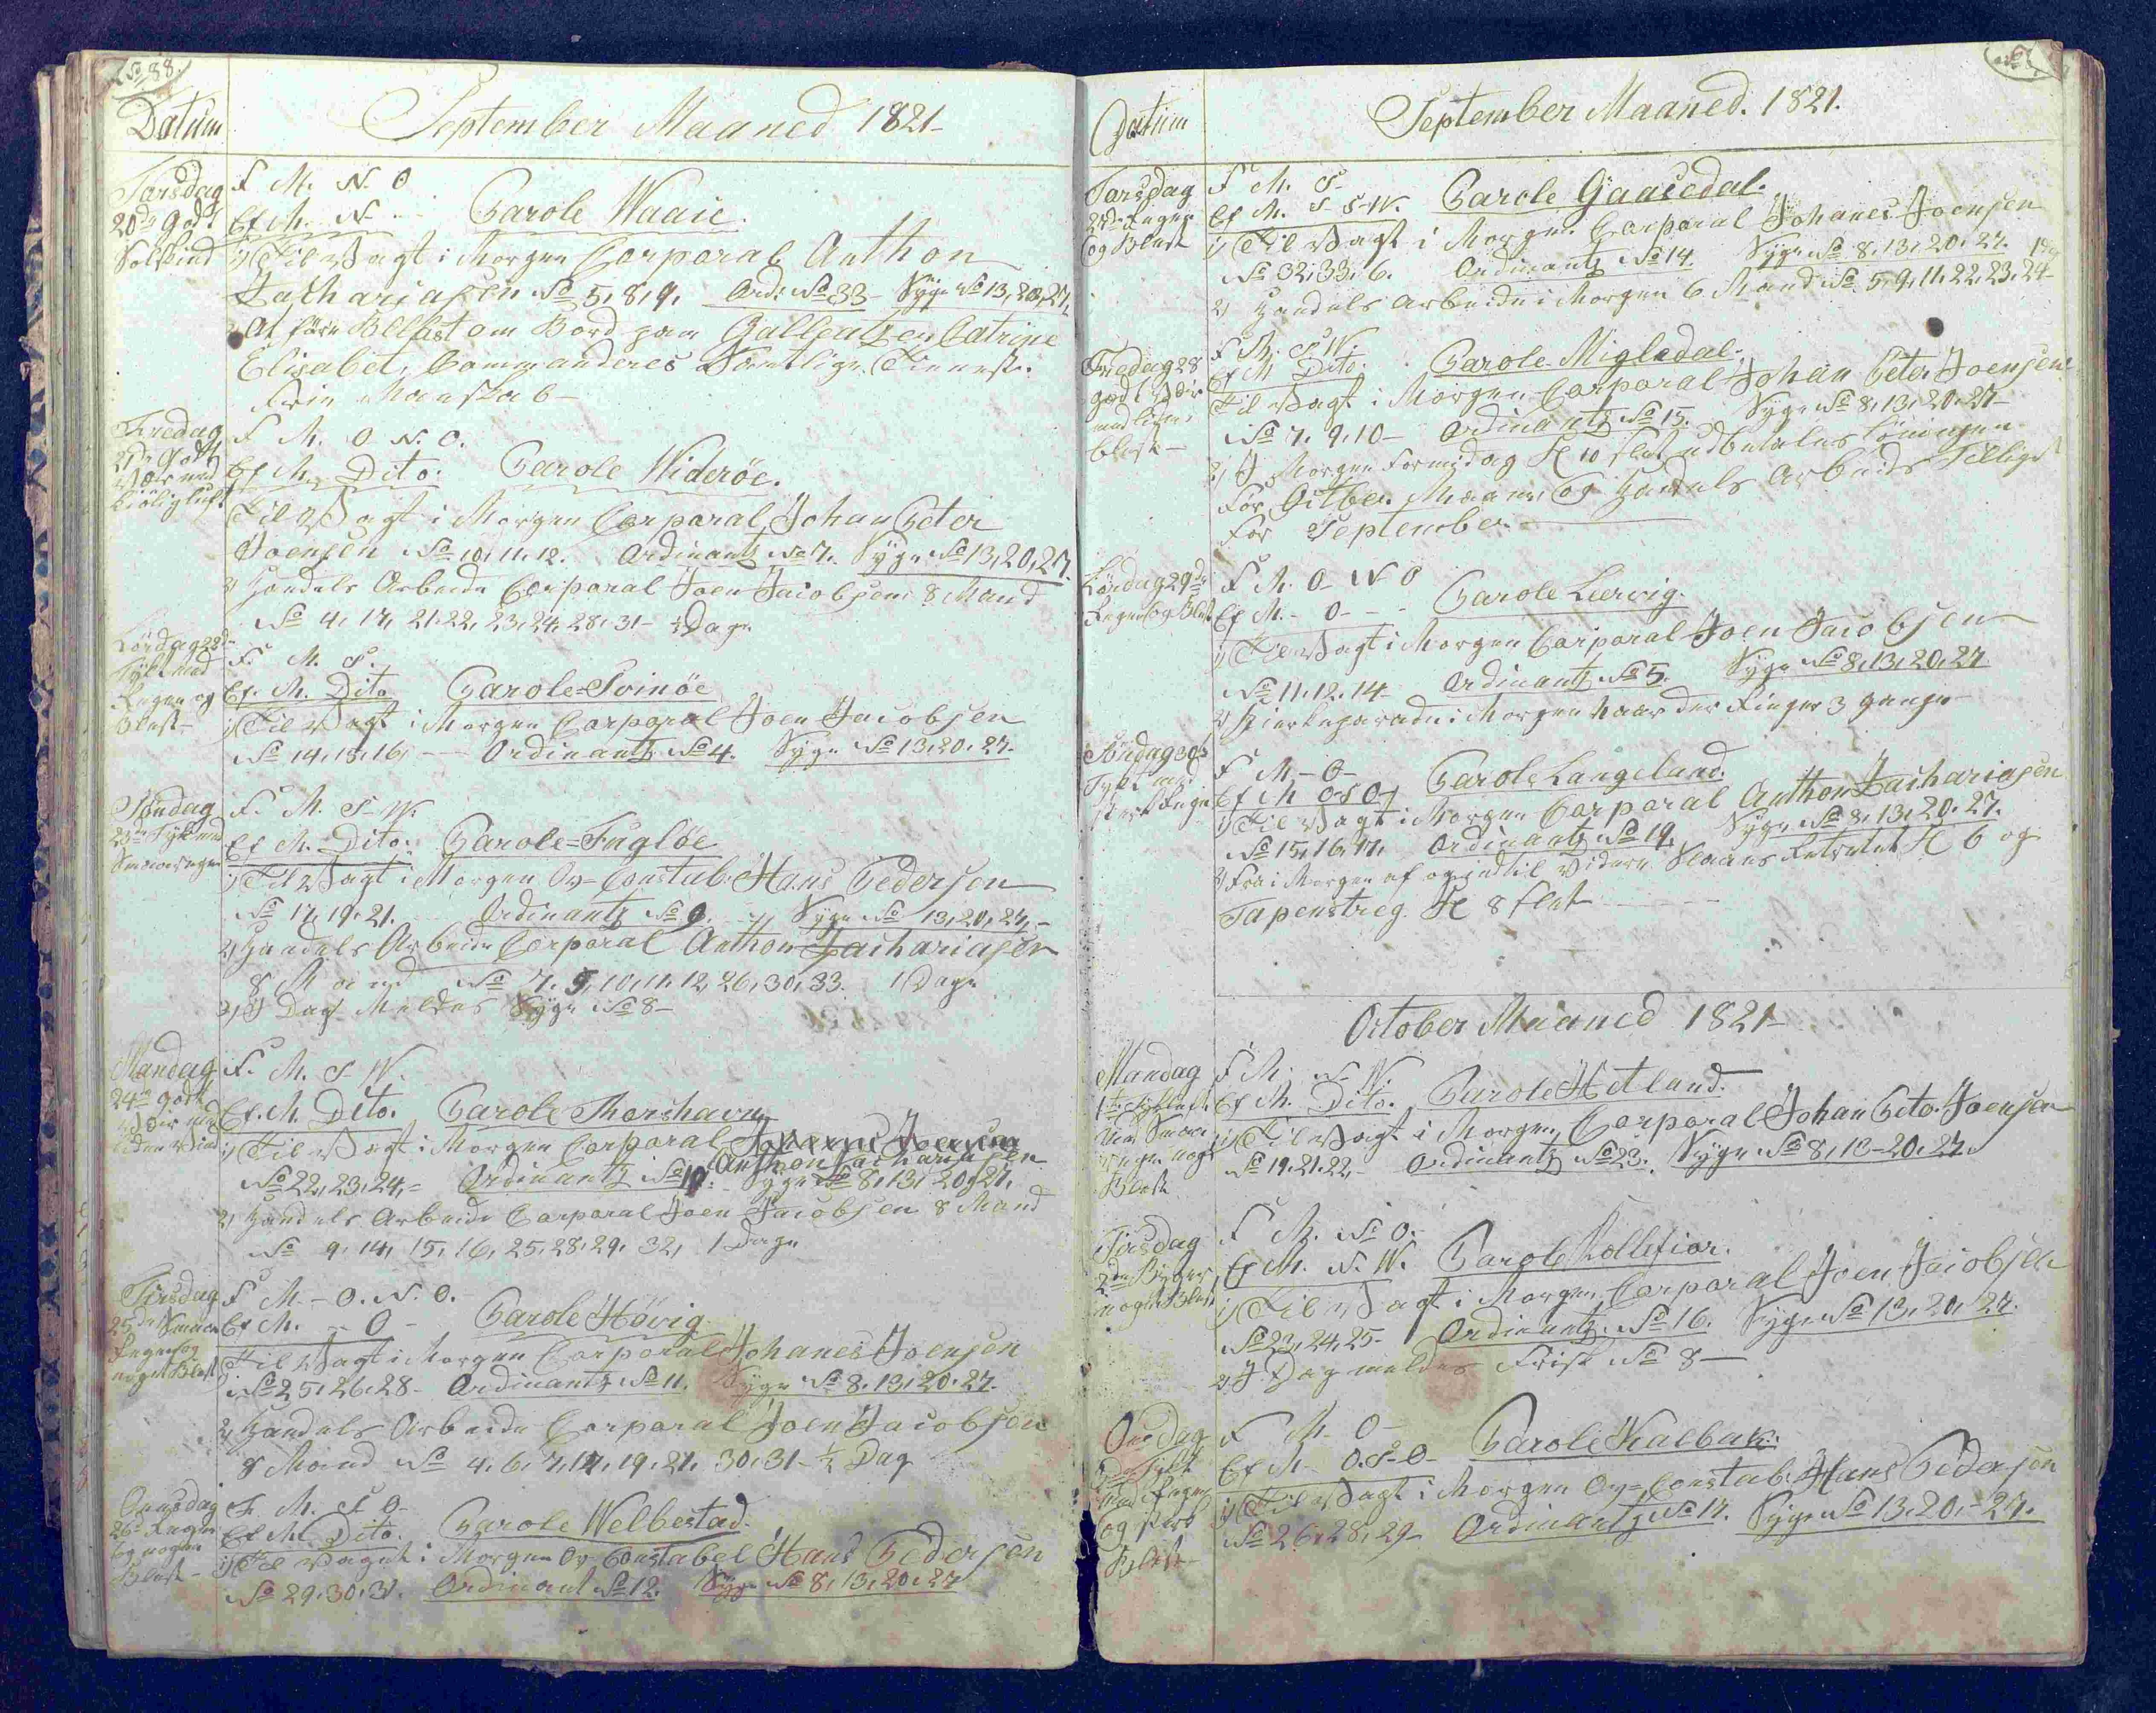 Datum
September Maaned 1821
Torsdag
20de godt
Solskind
F. M. N. O
Ef M. N. - Parole Waaie.
1) Til Vagt i Morgen Corporal Anthon
Zachariasen No 5, 8, 9. Ord: No 33 - Syge No 13, 20, 27.
At føre Ballast om Bord paa Galleatzen Catrine
Elisabet, Commanderes Samtlige Tieneste
Frie Manskab -
Fredag
21de godt
Veir med
kiølig luft
F M. O N. O.
Ef M. Dito. Parole Widerøe.
Til Vagt i Morgen Corporal Johan Peter
Joensen No 10, 11, 12. Ordinantz No 7. Syge No 13, 20, 27.
2) Handels Arbeide Corporal Joen Jacobsen 8 Mand
No 4, 17, 21, 22, 23, 24, 28, 31 - ½ Dage
Lørdag 22de
Tykt med
Regn og
Blest -
F. M. S.
Ef. M. Dito Parole = Svinøe
1) Til Vagt i Morgen Corporal Joen Jacobsen
No 14, 15, 16, - Ordinantz No 4. Syge No 13, 20, 27.
Søndag
23de Tyk med
Smaaregn
F. M. S. W.
Ef M. Dito. Parole = Fugløe
1) Til Vagt i Morgen Ov = Constab: Hans Pedersen
No 17, 19, 21. Ordinantz No 9. Syge No 13, 20, 27, -
2) Handels Arbeide Corporal Anthon Zachariasen
8 Mand No 7, 9, 10, 11, 12, 26, 30, 33. 1 Dage
3) I Dag Meldes Syge No 8 -
Mandag
24de godt
Veir med
liden Vind
F. M. S W.
Ef. M. Dito. Parole Thorshavn
1) Til Vagt i Morgen Corporal
Anthon Zachariasen
No 22, 23, 24, = Ordinantz No 10. Syge No 8, 13, 20, 27,
2) Handels Arbeide Corporal Joen Jacobsen 8 Mand
No 9, 14, 15, 16, 25, 28, 29, 32, 1 Dage
Tirsdag
25de Smaae
Regn og
noget Blest
F M. - O. N. O.
Ef M. - O - Parole Høvig
1) Til Vagt i Morgen Corporal Johanes Joensen
No 25, 26, 28 - Ordinantz No 11. Syge No 8, 13, 20, 27.
2) Handels Arbeide Corporal Joen Jacobsen
8 Mand No 4, 6, 7, 17, 19, 21, 30, 31 - ½ Dag
Onsdag
26de Regn
og nogen
Blest -
F. M. S O -
Ef M. Dito. Parole Welbestad.
1) Til Vagt i Morgen Ov Constabel Hans Pedersen
No 29, 30, 31. Ordinant No 12. Syge No 8, 13, 20, 27
Datum
September Maaned. 1821.
Torsdag
27de Regn
og Blest
F M. S -
Ef M. S S-W. Parole Gaasedal.
1) Til Vagt i Morgen Corporal Johanes Joensen
No 32, 33, 6. Ordinantz No 14. Syge No 8, 13, 20, 27. 1 Dag
2) Handels Arbeide i Morgen 6 Mand No 5, 9, 11, 22, 23, 24
Fredag 28
godt Veir
med liden
blest -
F M. S W.
Ef M Dito. Parole Migledal.
Til Vagt i Morgen Corporal Johan Peter Joensen
No 7, 9, 10 - Ordinantz No 15. Syge No 8, 13, 20, 27 -
2) I Morgen Formidag Kl 10 slet udbetales Lønningen
For Octber. Maaned og Handels Arbeids Tillige
For September.
Lørdag 29de
Regn og Blest
F M. O N O
Ef M. - O - - Parole Leervig.
1) Til Vagt i Morgen Corporal Joen Jacobsen
No 11, 12, 14 - Ordinantz No 5. Syge No 8, 13, 20, 27.
2) Kierkeparade i Morgen naar der Ringes 3 gange
Søndag 30
Tykt med
sterk Regn
F M - O -
Ef M O S O Parole Langeland.
1) Til Vagt i Morgen Corporal Anthon Zachariasen
No 15, 16, 17, Ordinantz No 19. Syge No 8, 13, 20, 27.
2) Fra i Morgen af og indtil Videre Slaaes Retraten Kl 6 og
Tapenstreg. Kl 8 slet - - -
October Maaned 1821 -
Mandag
F M. N. W.
Ef M. Dito. Parole Hetland.
1) Til Vagt i Morgen Corporal Johan Peter Joensen
No 19, 21, 22, Ordinantz No 23. Syge No 8, 13 - 20, 27.
Tirsdag
2de Byger
noget Blest
F M. N O.
Ef M. N. W. Parole Kollefior.
1) Til Vagt i Morgen Corporal Joen Jacobsen
No 23, 24, 25 - Ordinantz No 16. Syge No 13, 20, 27.
2) I Dag meldes Frisk No 8 -
Onsdag
3de Tykt
med Regn
og sterk
Blest -
F M - O -
Ef M - O. S - O - Parole Kalbak.
1) Til Vagt i Morgen Ov = Constab: Hans Pedersen
No 26, 28, 29 - Ordinantz No 17. Syge No 13, 20, - 27.